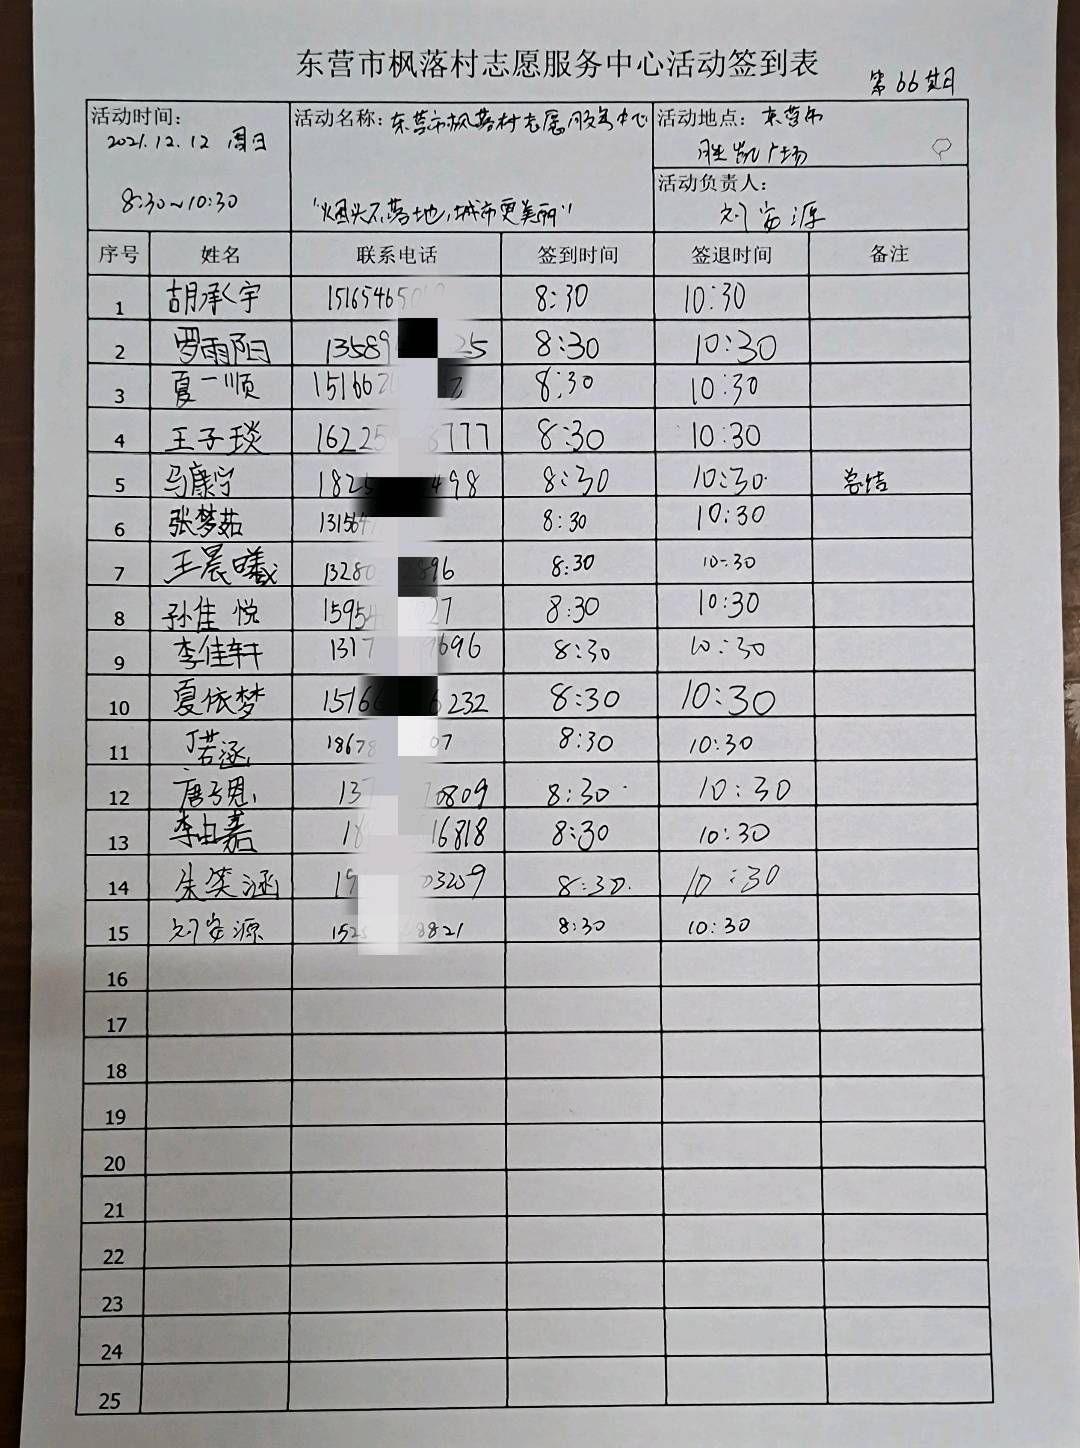 东营市枫落村志愿服务中心活动签到表
第66期
活动时间: 2021.12.12 周日
8:30~10:30
活动名称: 东营市枫落村志愿服务中心
"烟头不落地,城市更美丽"
活动地点: 东营市
胜凯广场
活动负责人:
刘安源
序号 姓名 联系电话 签到时间 签退时间 备注
1 胡承宇 15165465 8:30 10:30
2 罗雨阳 13589 25 8:30 10:30
3 夏一顺 151662 8:30 10:30
4 王子琰 16225 8777 8:30 10:30
5 马康宁 1825 498 8:30 10:30 总结
6 张梦茹 131564 8:30 10:30
7 王晨曦 13280 896 8:30 10:30
8 孙佳悦 15954 27 8:30 10:30
9 李佳轩 1317 9696 8:30 10:30
10 夏依梦 15166 6232 8:30 10:30
11 丁若涵 18678 07 8:30 10:30
12 唐子恩 137 70809 8:30 10:30
13 李由嘉 18 16818 8:30 10:30
14 朱笑涵 19 03209 8:30 10:30
15 刘安源 152 8821 8:30 10:30
16
17
18
19
20
21
22
23
24
25